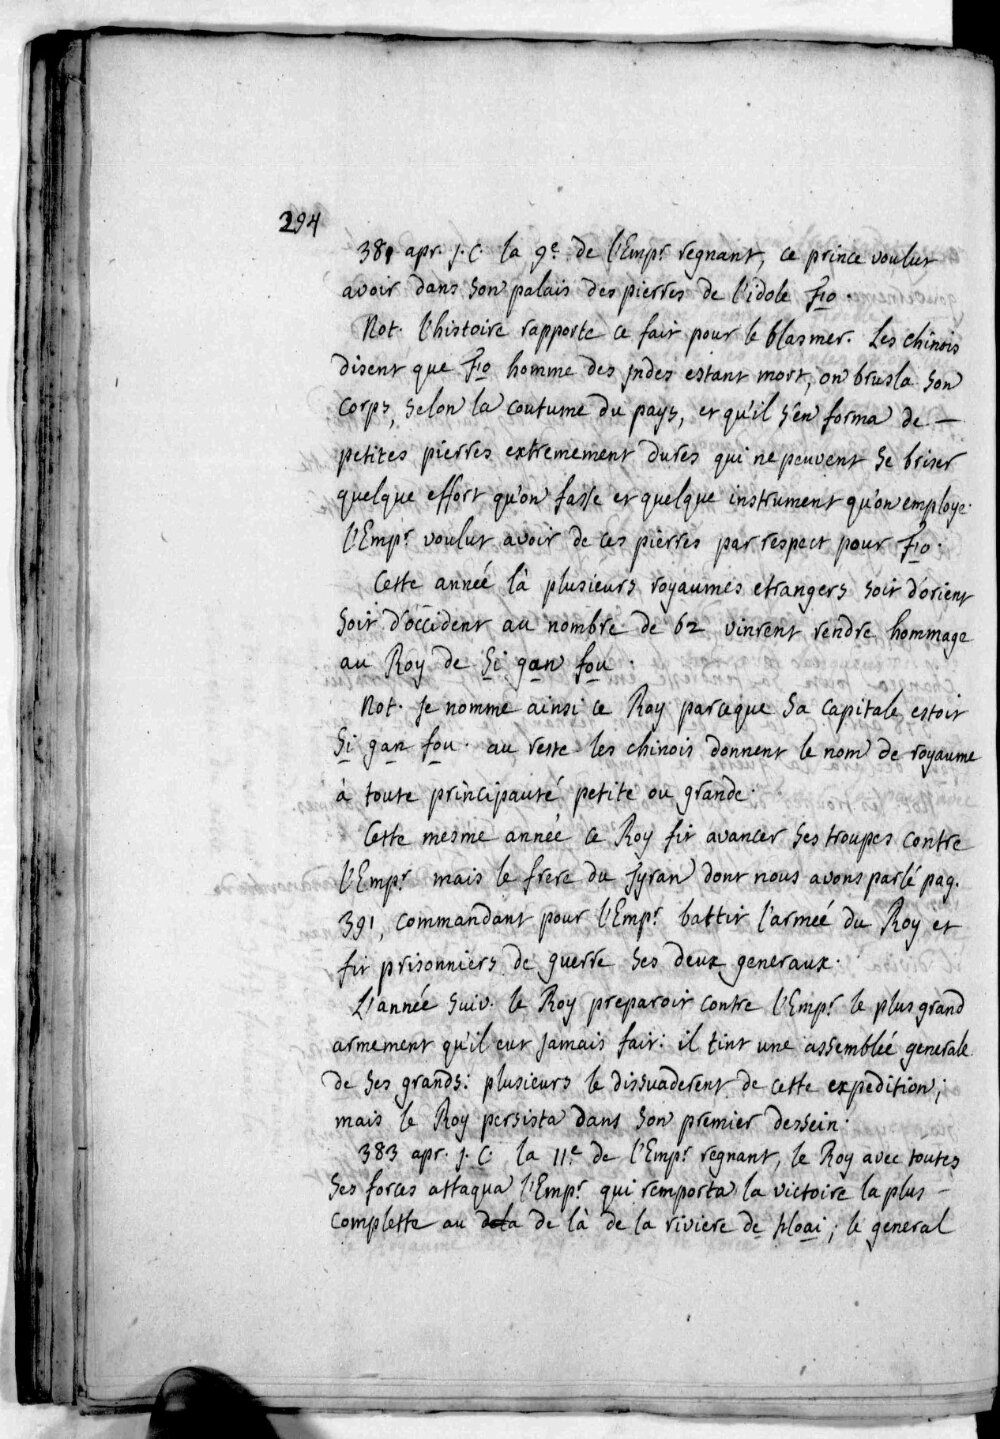 294
381 apr. j. C. la 9e. de l'Empr. regnant, ce prince voulut
avoir dans son palais des pierres de l'idole Fo.
Not. l'histoire rapporte ce fait pour le blasmer. Les chinois
disent que Fo homme des jndes estant mort, on brusla son
corps, selon la coutume du pays, et qu'il s'en forma de —
petites pierres extremement dures qui ne peuvent se briser
quelque effort qu'on fasse et quelque instrument qu'on employe.
l'Empr. voulut avoir de ces pierres par respect pour Fo.
Cette année là plusieurs royaumes etrangers soit d'orient
soit d'occident au nombre de 62 vinrent rendre hommage
au Roy de Si gan fou.
Not. je nomme ainsi ce Roy parceque sa capitale estoit
Si gan fou. au reste les chinois donnent le nom de royaume
à toute principauté petite ou grande.
Cette mesme année ce Roy fit avancer ses troupes contre
l'Empr. mais le frere du Tyran dont nous avons parlé pag.
391, commandant pour l'Empr. battit l'armée du Roy et
fit prisonniers de guerre ses deux generaux.
L'année suiv. le Roy preparoit contre l'Empr. le plus grand
armement qu'il eut jamais fait: il tint une assemblée generale
de ses grands: plusieurs le dissuaderent de cette expedition;
mais le Roy persista dans son premier dessein.
383 apr. j. C. la 11e. de l'Empr. regnant, le Roy avec toutes
ses forces attaqua l'Empr. qui remporta la victoire la plus —
complette au de là de la riviere de hoai; le general